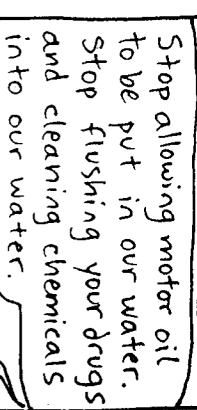 Stop allowing motor oil
to be put in our water.
Stop flushing your drugs
and cleaning chemicals
into our water.